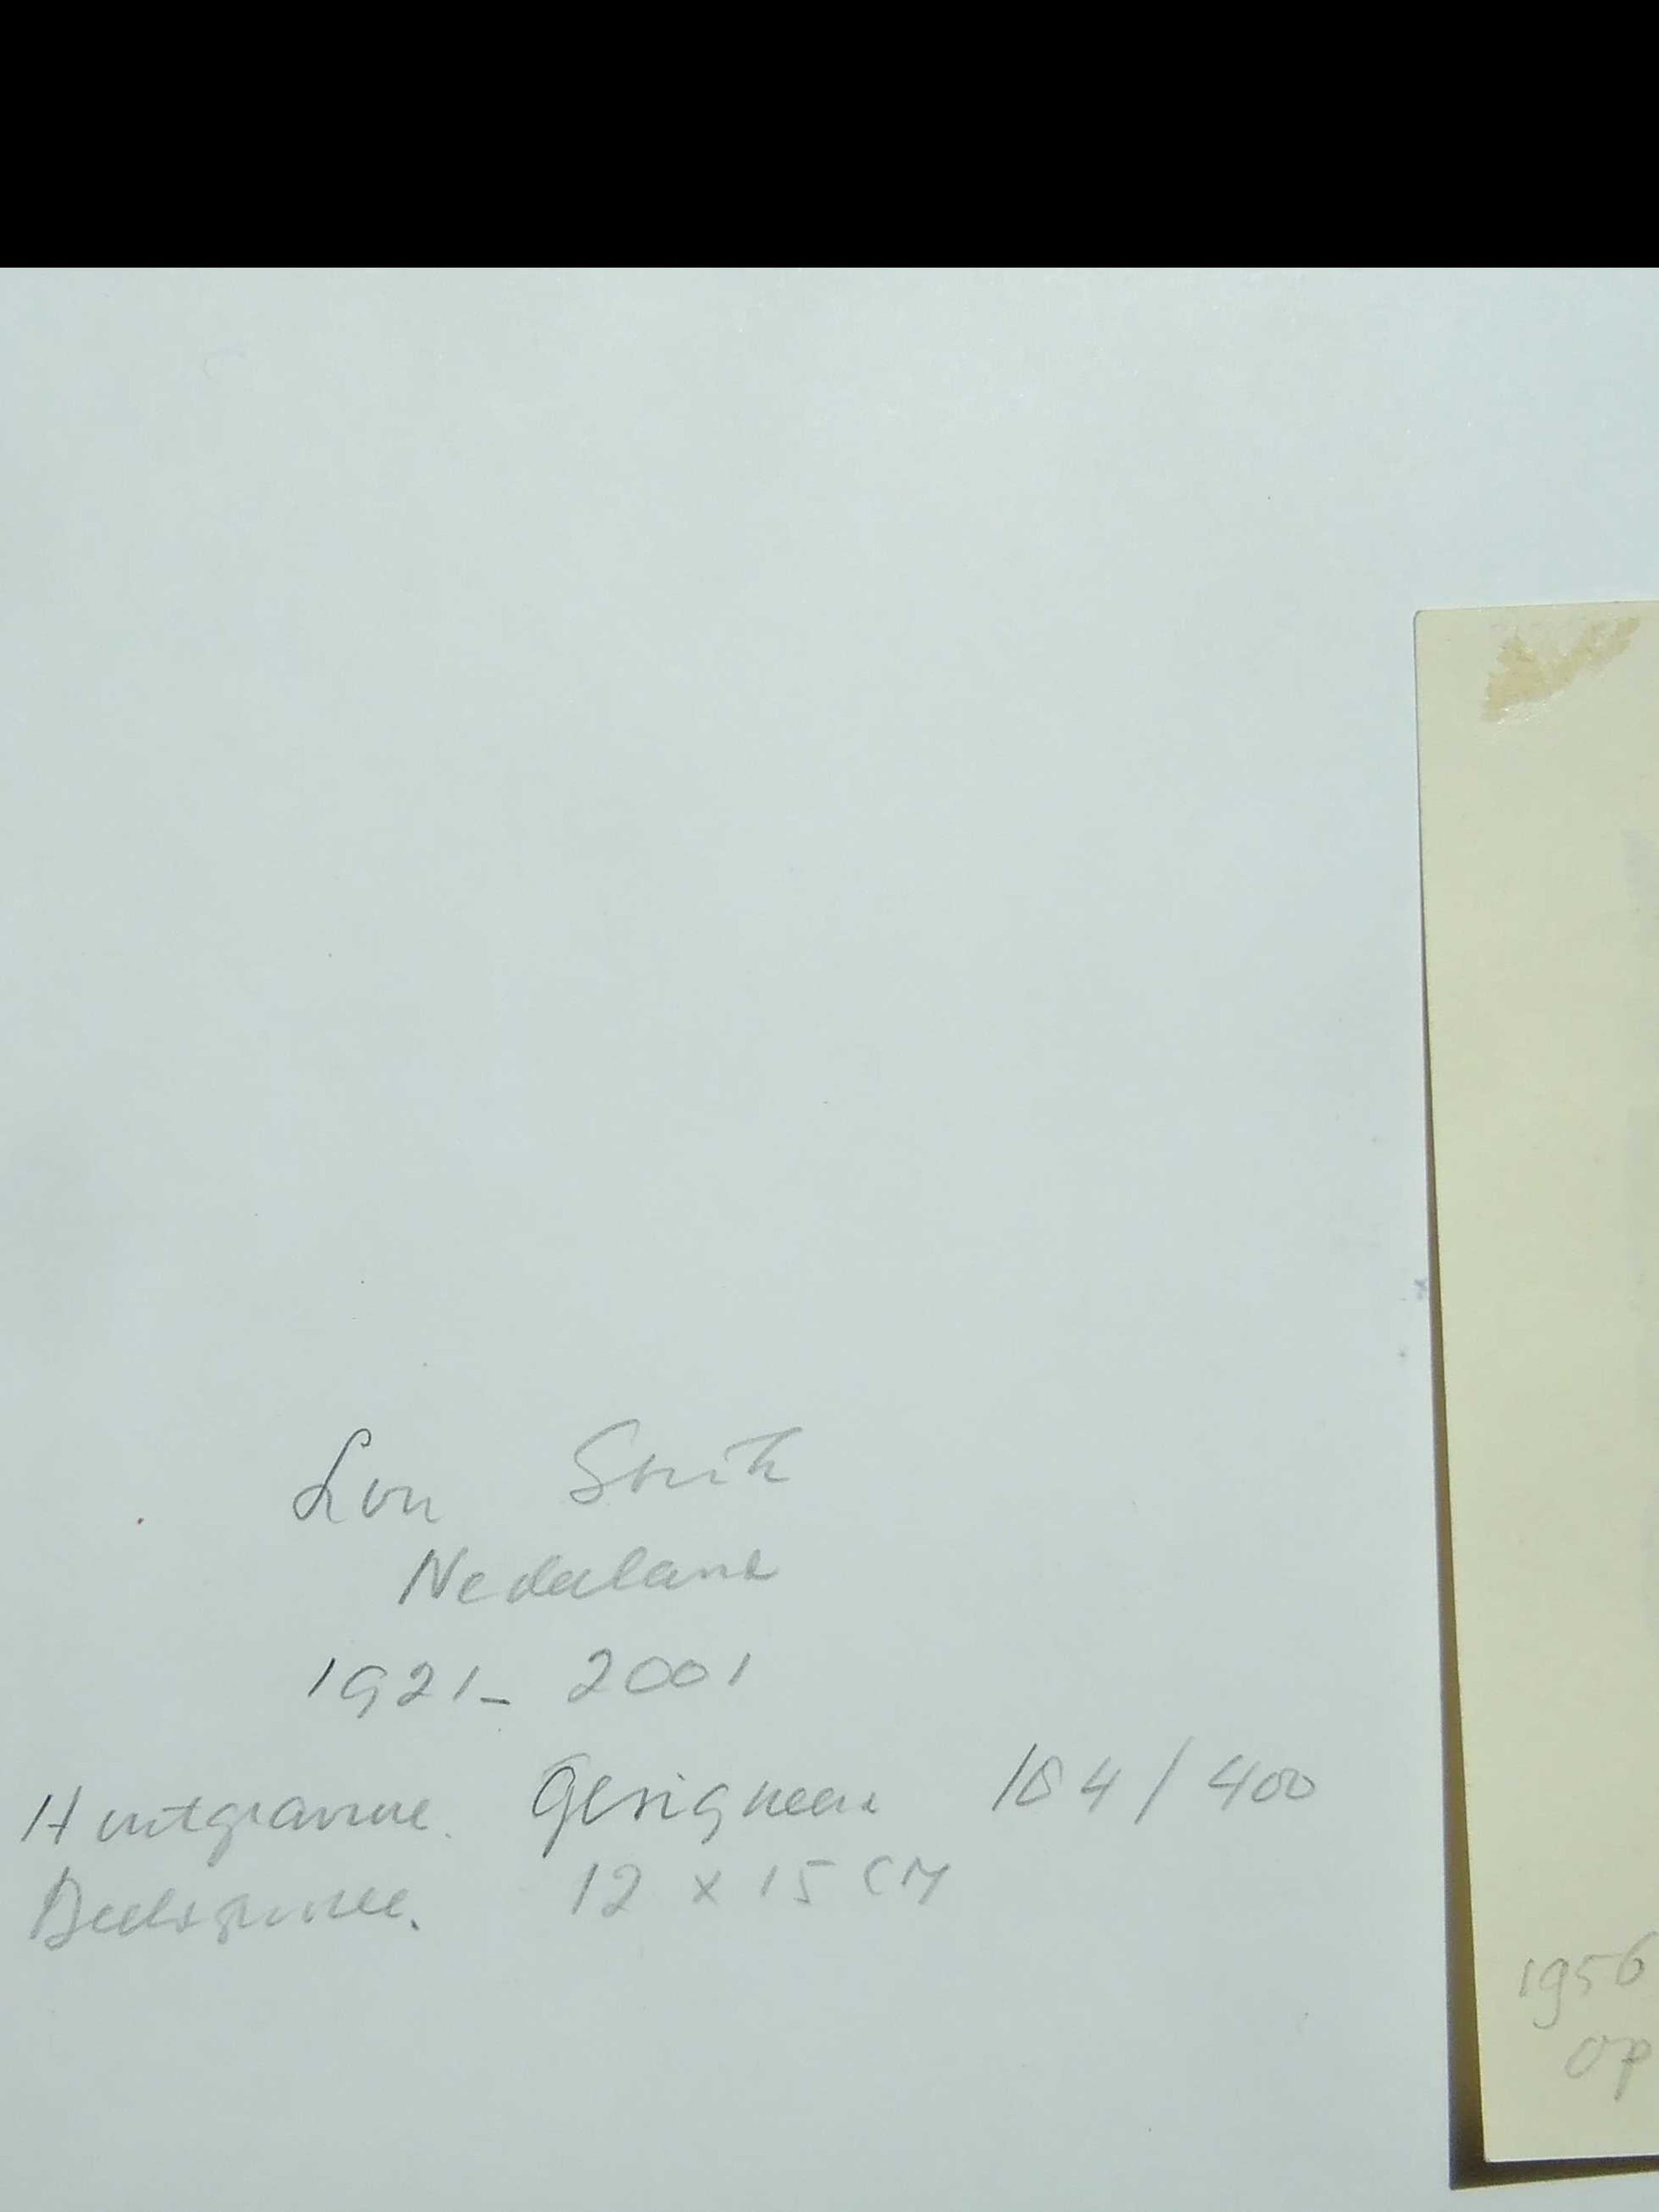 Lou Smit
Nederland
1921- 2001
Houtgravure. Gesigneerd 104/400
12 x 15 CM
1956
op